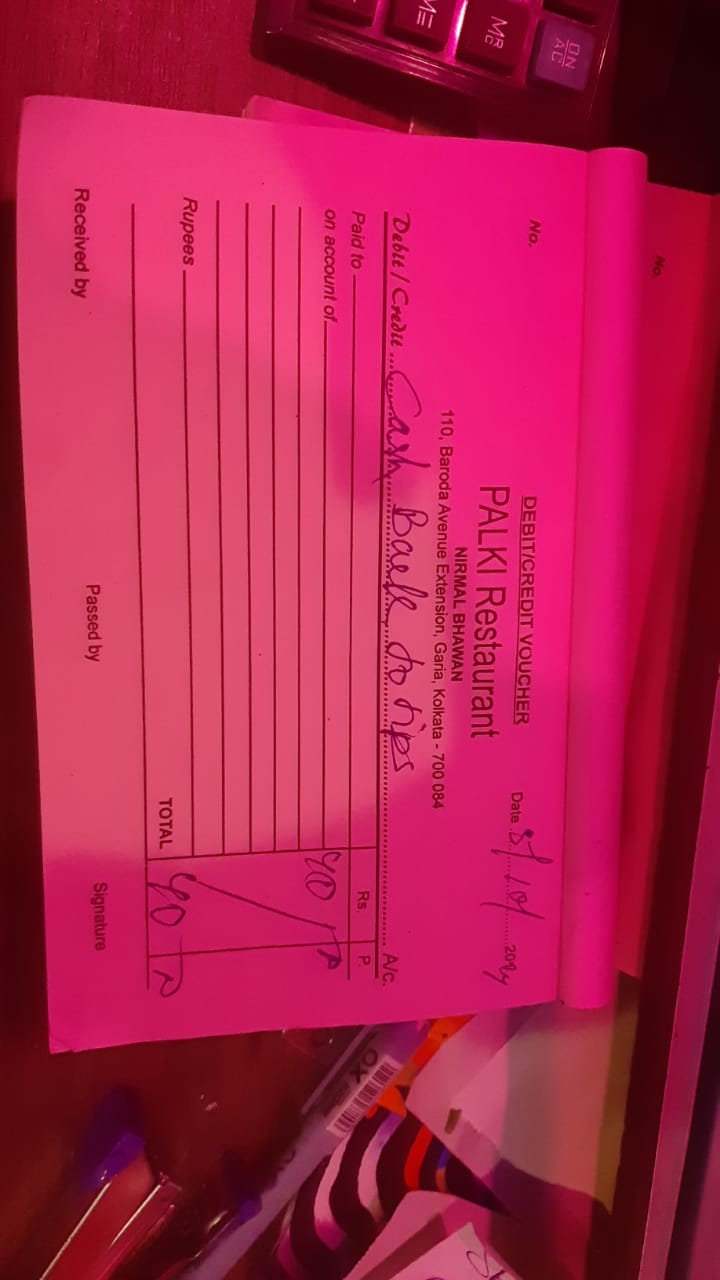 No.
DEBIT/CREDIT VOUCHER
PALKI Restaurant
NIRMAL BHAWAN
110, Baroda Avenue Extension, Garia, Kolkata - 700 084
No.
Date 8/10/2024
Debit / Credit Cash Back to tips A/c.
Paid to Rs. P.
on account of 90
Rupees
TOTAL 90
Received by Passed by Signature
ON
AC
MRC
M=
OX